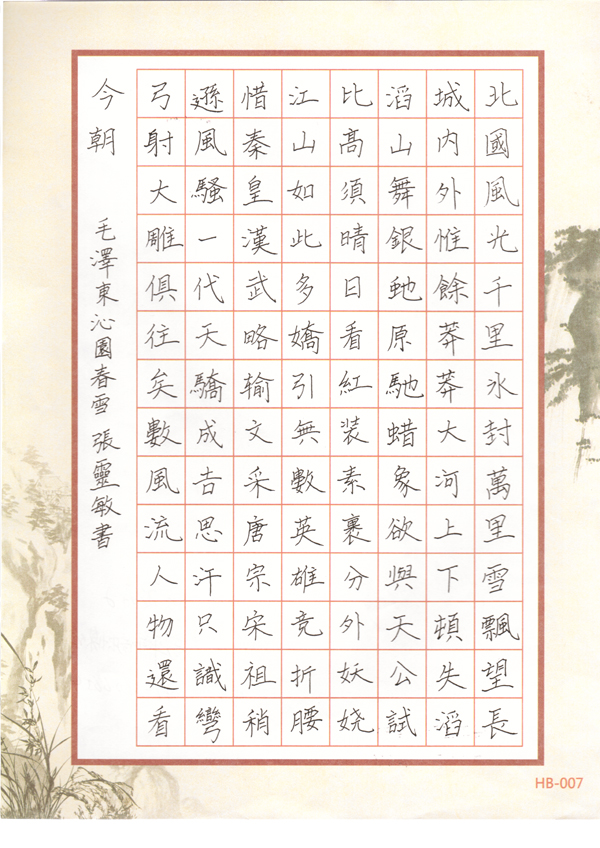 北國風光千里氷封萬里雪飄望長
城内外惟餘莽莽大河上下頓失滔
滔山舞銀虵原馳蜡象欲與天公試
比髙須晴日看紅装素裹分外妖娆
江山如此多嬌引無數英雄竞折腰
惜秦皇漢武略输文采唐宗宋祖稍
遜風騷一代天驕成吉思汗只識彎
弓射大雕俱往矣數風流人物還看
今朝 毛澤東沁園春雪 張靈敏書
HB-007